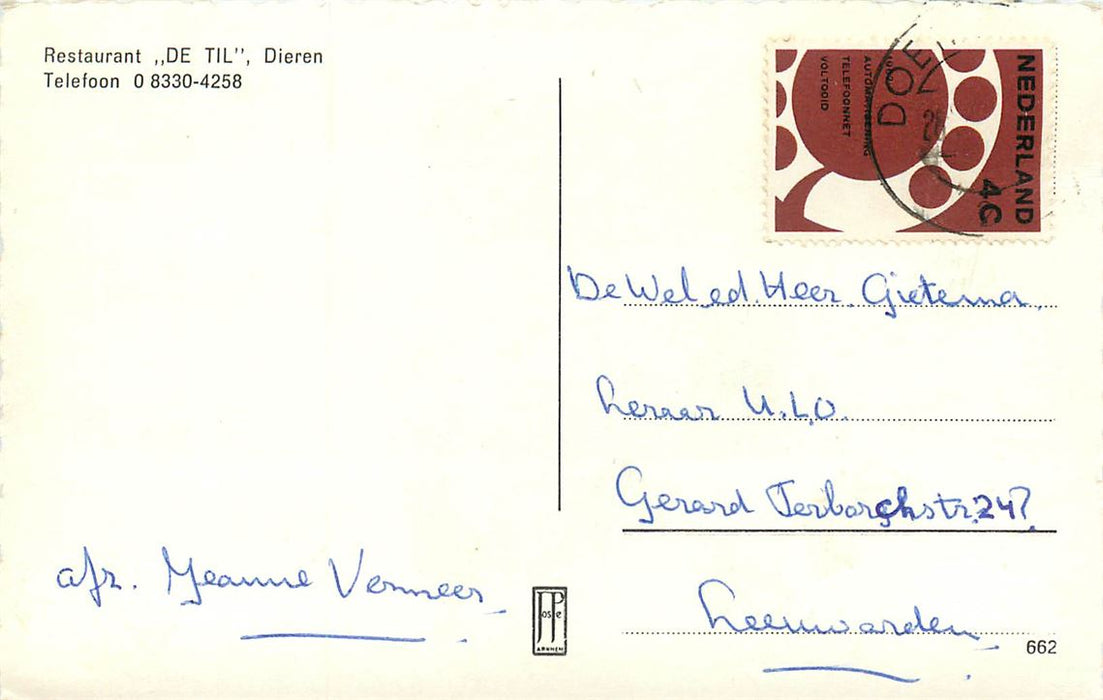 Restaurant „DE TIL”, Dieren
Telefoon 0 8330-4258
NEDERLAND
4C
AUTOMATISERING
TELEFOONNET
VOLTOOID
DOE
De Wel.ed. Heer. Gietema.
Leraar U.L.O.
Gerard Terborchstr. 24?
Leeuwarden
afz. Yeanne Vermeer
JosPe
ARNHEM
662